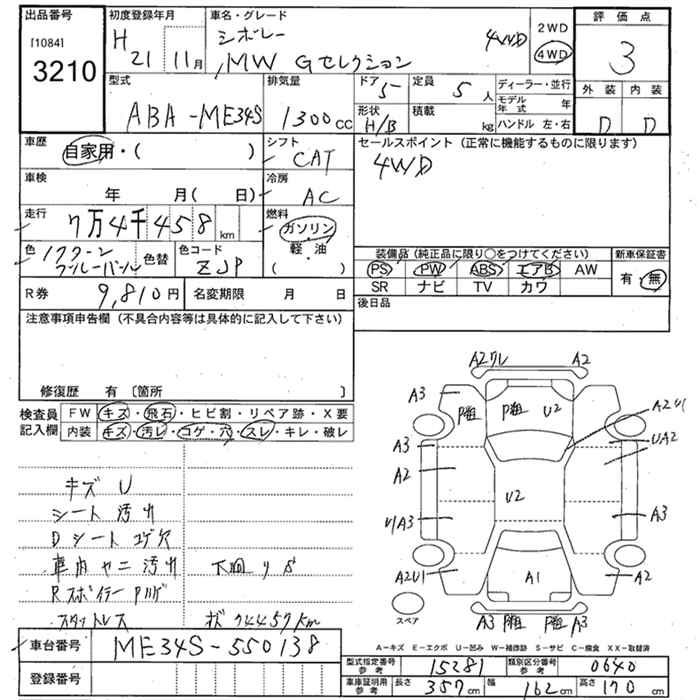 出品番号
[1084]
3210
初度登録年月
H 21 11月
車名・グレード
シボレー
MW Gセレクション
4WD
2WD
4WD
評価点
3
外装 内装
D D
型式
ABA-ME34S
排気量
1300cc
ドア 5
定員 5人
ディーラー・並行
モデル年式 年
形状 H/B
積載 kg
ハンドル 左・右
車歴
自家用・( )
シフト CAT
セールスポイント (正常に機能するものに限ります)
4WD
車検
年 月( 日)
冷房 AC
走行 7万4千458km
燃料
ガソリン
軽・油
( )
色
色替
色コード ZJP
装備品(純正品に限り○をつけてください)
新車保証書
PS PW ABS エアB AW
SR ナビ TV カワ
有・無
R券 9,810円
名変期限 月 日
後日品
注意事項申告欄 (不具合内容等は具体的に記入して下さい)
修復歴 有 〔箇所 〕
検査員記入欄
FW キズ・飛石・ヒビ割・リペア跡・X要
内装 キズ・汚レ・コゲ・穴・スレ・キレ・破レ
キズ U
シート 汚レ
D シート コゲ穴
車内 ヤニ 汚レ
下回り S
R スポイラー Pハゲ
スタットレス
74457km
A2ワレ A2
A3 P粗 P粗 U2 A2U1
A3 UA2
A2 U2
U1A3 A3
A2U1 A1 A2
A3 P粗 P粗 A3
スペア
A-キズ E-エクボ U-凹み W-補修跡 S-サビ C-腐食 XX-取替済
車台番号 ME34S-550138
登録番号
型式指定番号 参考 15281
類別区分番号 参考 0640
車庫証明用 参考 長さ 357cm 幅 162cm 高さ 170cm